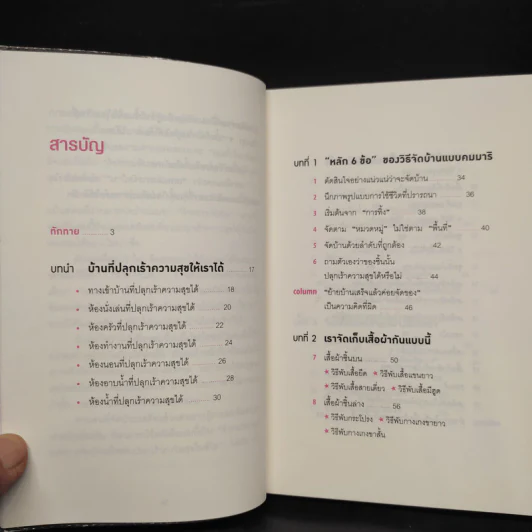 สารบัญ
ทักทาย 3
บทนำ บ้านที่ปลุกเร้าความสุขให้เราได้ 17
• ทางเข้าบ้านที่ปลุกเร้าความสุขได้ 18
• ห้องนั่งเล่นที่ปลุกเร้าความสุขได้ 20
• ห้องครัวที่ปลุกเร้าความสุขได้ 22
• ห้องทำงานที่ปลุกเร้าความสุขได้ 24
• ห้องนอนที่ปลุกเร้าความสุขได้ 26
• ห้องอาบน้ำที่ปลุกเร้าความสุขได้ 28
• ห้องน้ำที่ปลุกเร้าความสุขได้ 30
บทที่ 1 "หลัก 6 ข้อ" ของวิธีจัดบ้านแบบคมมาริ
1 ตัดสินใจอย่างแน่วแน่ว่าจะจัดบ้าน 34
2 นึกภาพรูปแบบการใช้ชีวิตที่ปรารถนา 36
3 เริ่มต้นจาก "การทิ้ง" 38
4 จัดตาม "หมวดหมู่" ไม่ใช่ตาม "พื้นที่" 40
5 จัดบ้านด้วยลำดับที่ถูกต้อง 42
6 ถามตัวเองว่าของชิ้นนั้น
ปลุกเร้าความสุขได้หรือไม่ 44
column "ย้ายบ้านเสร็จแล้วค่อยจัดของ"
เป็นความคิดที่ผิด 46
บทที่ 2 เราจัดเก็บเสื้อผ้ากันแบบนี้
7 เสื้อผ้าชิ้นบน 50
★ วิธีพับเสื้อยืด ★ วิธีพับเสื้อแขนยาว
★ วิธีพับเสื้อสายเดี่ยว ★ วิธีพับเสื้อมีฮูด
8 เสื้อผ้าชิ้นล่าง 56
★ วิธีพับกระโปรง ★ วิธีพับกางเกงขายาว
★ วิธีพับกางเกงขาสั้น